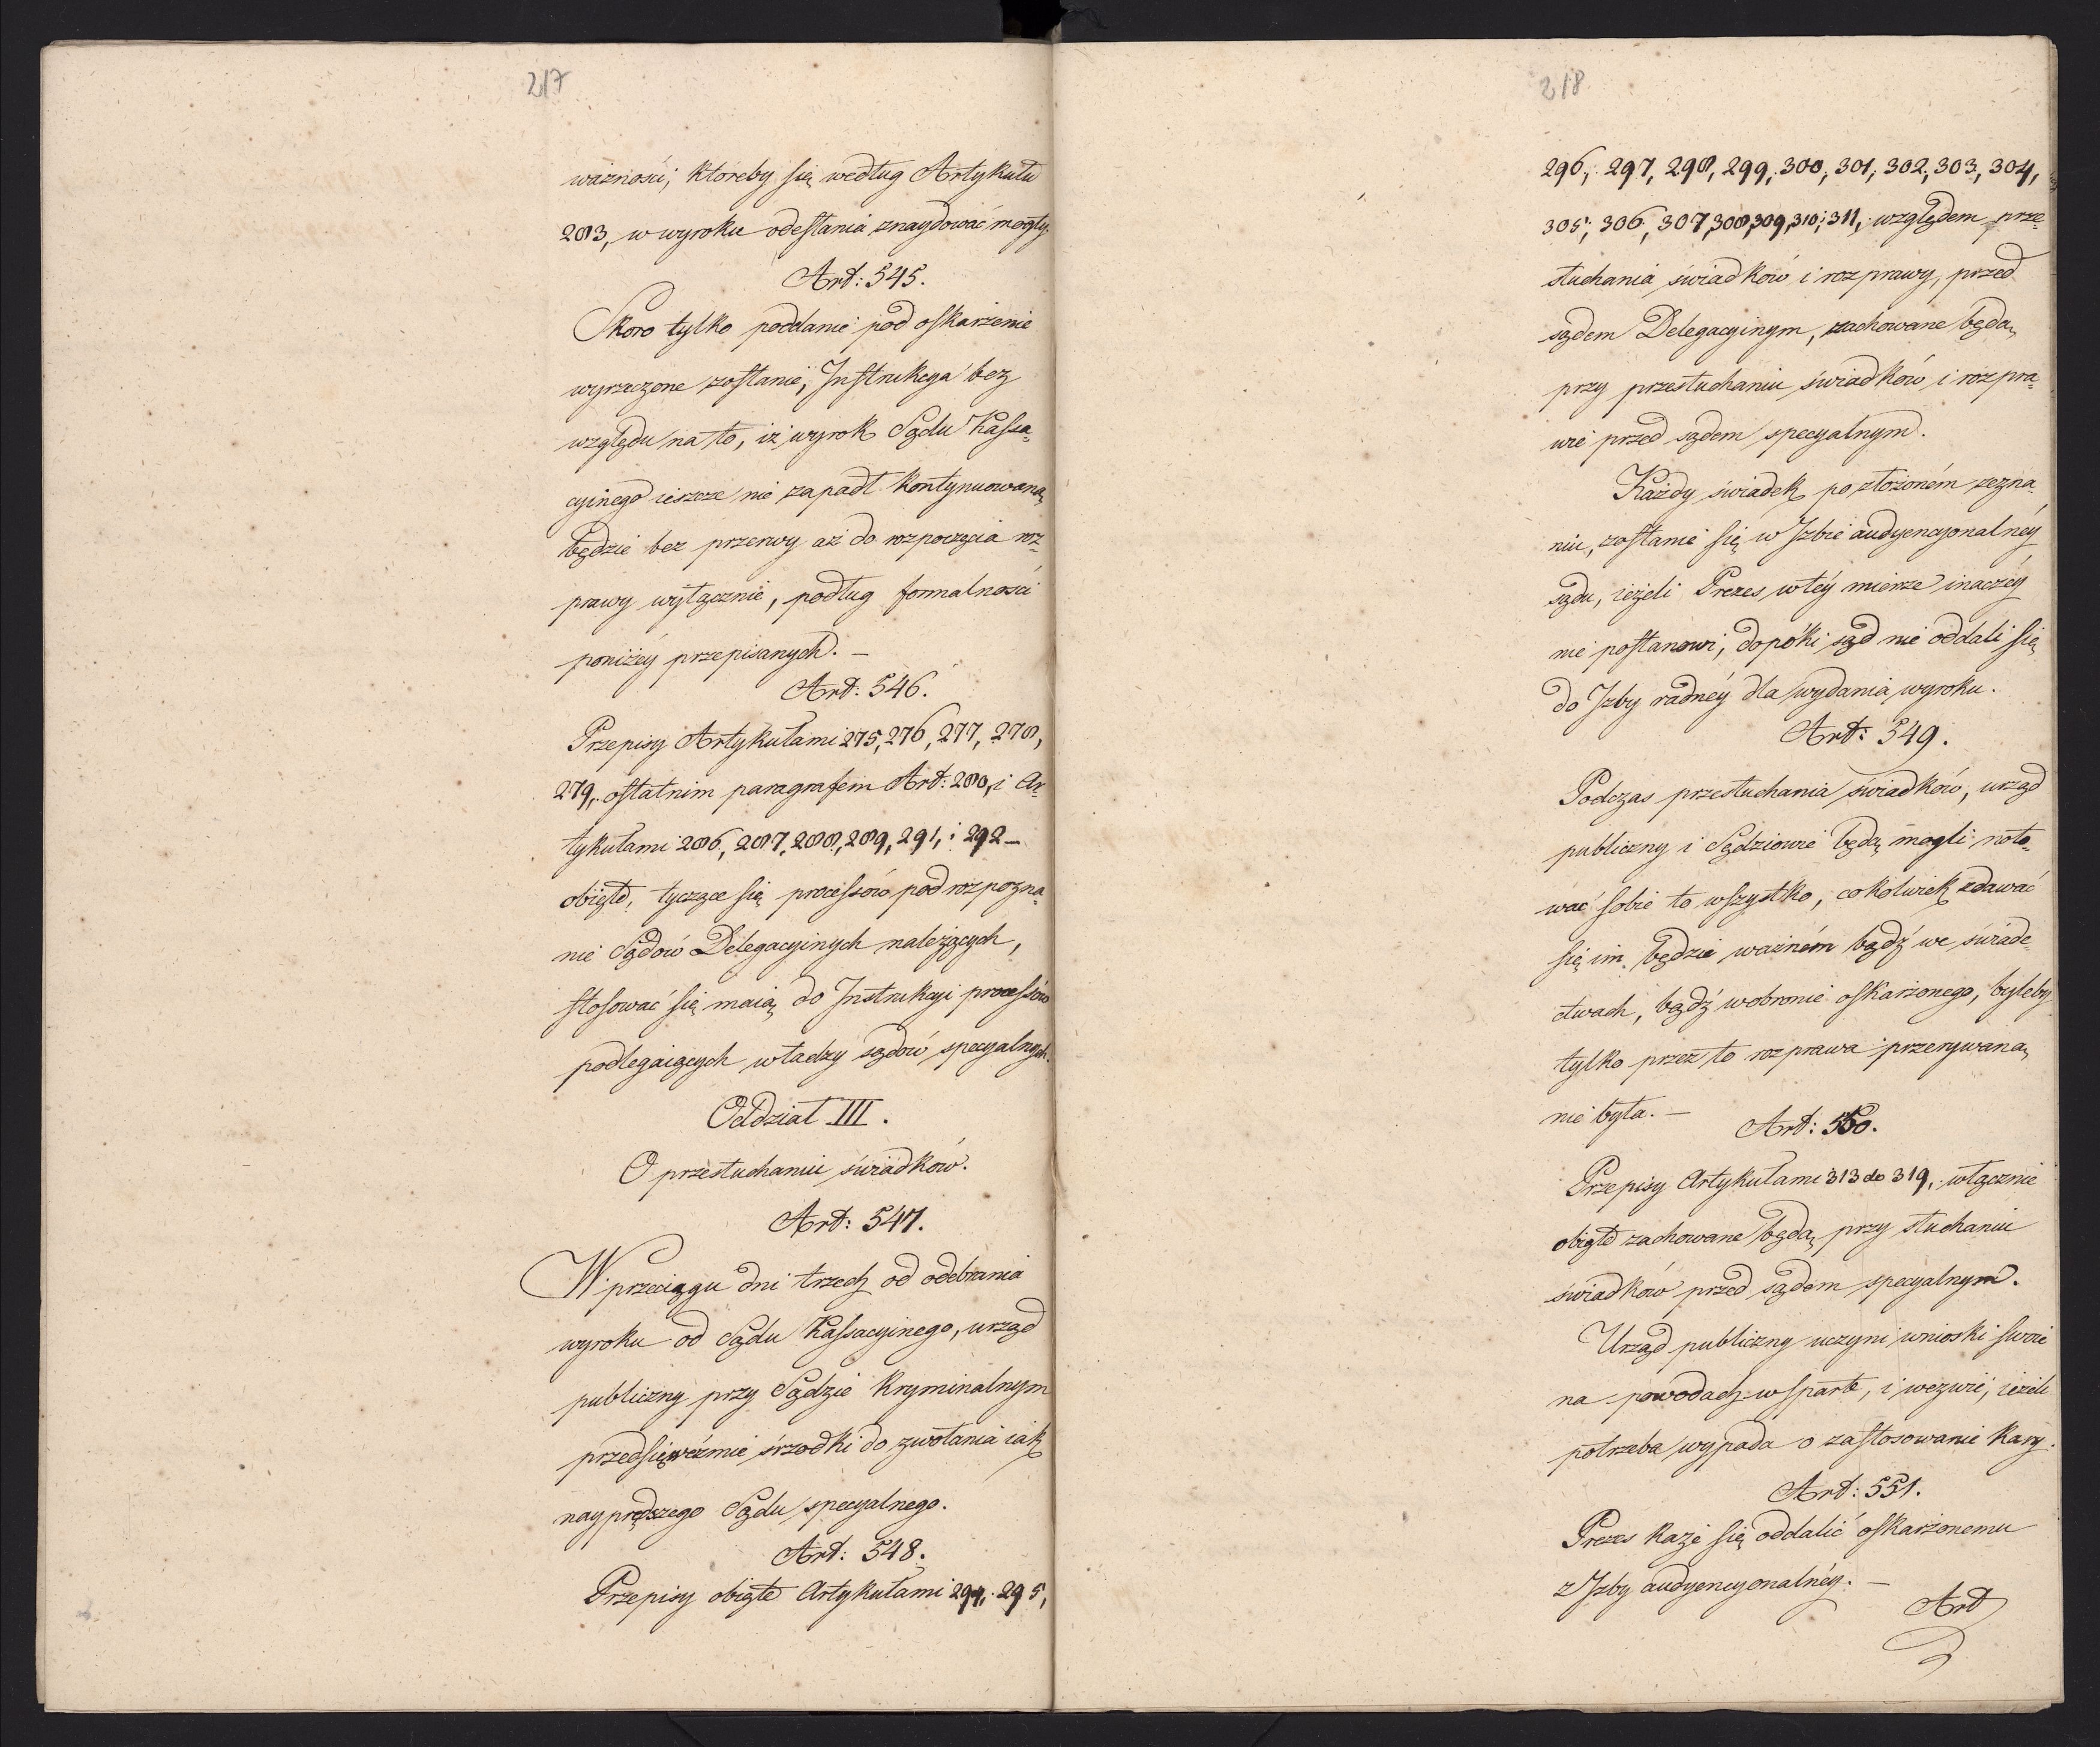 217
ważności, któreby się według Artykułu
283, w wyroku odesłania znaydować mogły.
Art: 545.
Skoro tylko poddanie pod oskarżenie
wyrzeczone zostanie, Instrukcya bez
względu na to, iż wyrok Sądu Kassa-
cyinego ieszcze nie zapadł kontynuowaną
będzie bez przerwy aż do rozpoczęcia roz-
prawy wyłącznie, podług formalności
poniżéy przepisanych. —
Art: 546.
Przepisy Artykułami 275, 276, 277, 278,
279, ostatnim paragrafem Art: 280, i Ar-
tykułami 286, 287, 288, 289, 291, i 292 —
obięte, tyczące się processów pod rozpozna-
nie Sądów Delegacyinych należących,
stosować się maią do Instrukcyi processów
podlegaiących władzy sądów specyalnych.
Oddział III.
O przesłuchaniu świadków.
Art: 547.
W przeciągu dni trzech od odebrania
wyroku od Sądu Kassacyinego, urząd
publiczny przy Sądzie Kryminalnym
przedsięweźmie śrzodki do zwołania iak
nayprędszego Sądu specyalnego.
Art: 548.
Przepisy obięte Artykułami 294, 295,
218
296, 297, 298, 299, 300, 301, 302, 303, 304,
305, 306, 307, 308, 309, 310, 311, względem prze-
słuchania świadków i rozprawy, przed
sądem Delegacyinym, zachowane będą
przy przesłuchaniu świadków i rozpra-
wie przed sądem specyalnym.
Każdy świadek po złożoném zezna-
niu, zostanie się w Izbie audyencyonalnéy
sądu, ieżeli Prezes w téy mierze inaczéy
nie postanowi, dopóki sąd nie oddali się
do Izby radnéy dla wydania wyroku.
Art: 549.
Podczas przesłuchania świadków, urząd
publiczny i Sędziowie będą mogli noto-
wać sobie to wszystko, cokolwiek zdawać
się im będzie ważném bądź we świade-
ctwach, bądź w obronie oskarżonego, byleby
tylko przez to rozprawa przerywaną
nie była. —
Art: 550.
Przepisy Artykułami 313 do 319, włącznie
obięte zachowane będą przy słuchaniu
świadków przed sądem specyalnym.
Urząd publiczny uczyni wnioski swoie
na powodach wsparte, i wezwie, ieżeli
potrzeba wypada o zastosowanie kary.
Art: 551.
Prezes każe się oddalić oskarżonemu
z Izby audyencyonalnéy. —
Art